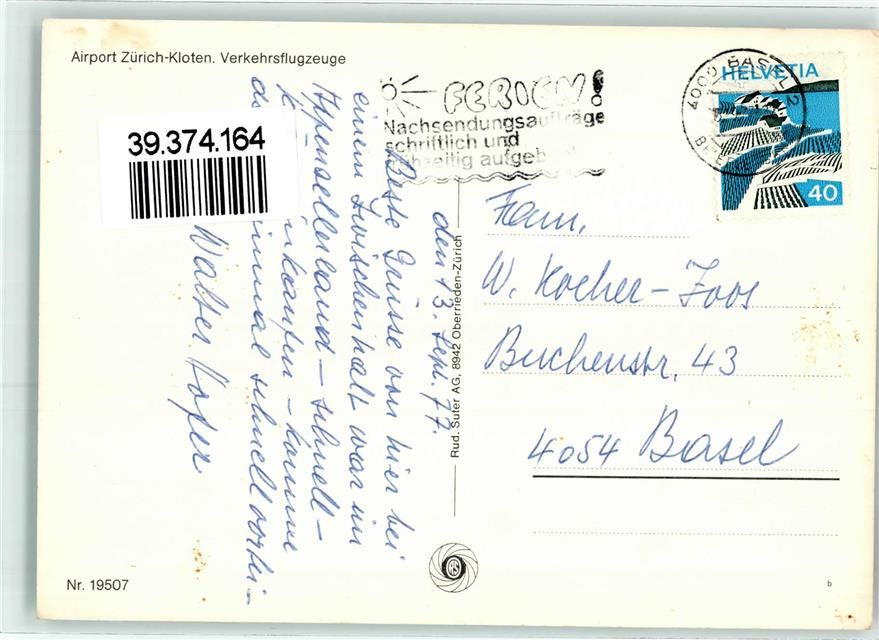 Airport Zürich-Kloten. Verkehrsflugzeuge
39.374.164
FERIEN!
Nachsendungsaufträge
schriftlich und
aufgeb
4000 BASEL 2
HELVETIA
40
den 13. Sept. 77.
Beste Grüsse von hier bei
einem Zwischenhalt war im
schnell-
komme
schnell vorbei-
Walter Hofer
Rud. Suter AG, 8942 Oberrieden-Zürich
Fam.
W. Kocher-Joos
Buchenstr. 43
4054 Basel
Nr. 19507
b